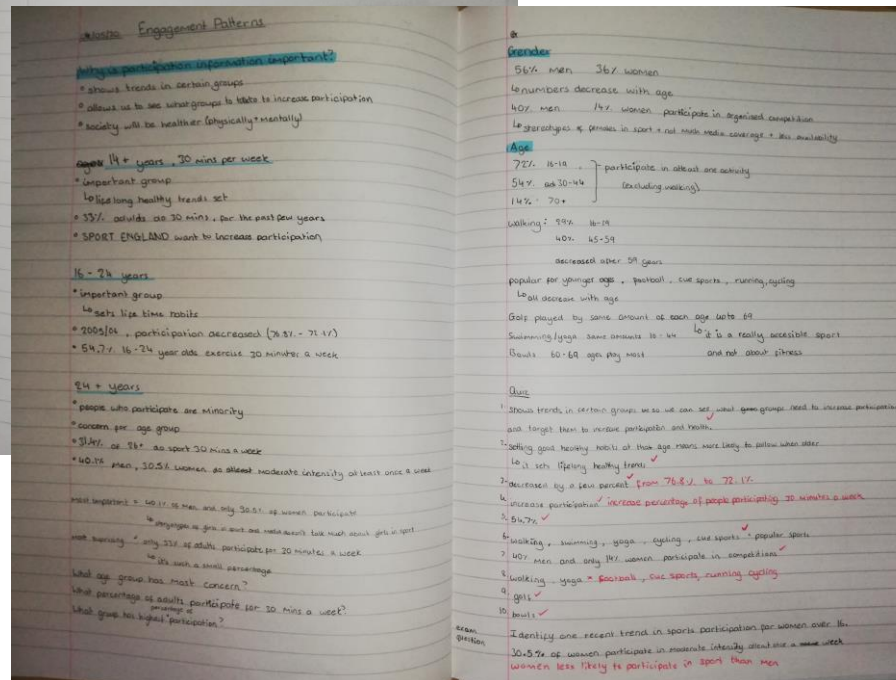 Engagement Patterns
Why is participation information important?
• shows trends in certain groups
• allows us to see what groups to to increase participation
• society will be healthier (physically + mentally)
14+ years, 30 mins per week
• important group
↳ lifelong healthy trends set
• 33% do 30 mins, for the past few years
• SPORT ENGLAND want to increase participation
16 - 24 years
• important group
↳ sets life time habits
• 2005/06, participation decreased
• 54.7% 16-24 year olds exercise 30 minutes a week
24+ years
• people who participate are minority
• concern for age group
• 31.4% of 26+ do sport 30 mins a week
• 40.1% men, 30.5% women do moderate intensity at least once a week
most important = 40.1% of men and only 30.5% of women participate
↳ of girls in sport and media doesn't talk much about girls in sport
most surprising = only 33% of adults participate for 30 minutes a week
↳ it's such a small percentage
What age group has most concern?
What percentage of adults participate for 30 mins a week?
What group has highest percentage of participation?
Gender
56% men 36% women
↳ numbers decrease with age
40% men 14% women participate in organised competition
↳ stereotypes of females in sport + not much media coverage + less availability
Age
72% 16-19
54% 30-44
14% 70+
participate in atleast one activity
(excluding walking)
walking: 16-19
40% 45-59
decreased after 59 years
popular for younger ages, football, cue sports, running, cycling
↳ all decrease with age
Golf played by same amount of each age upto 69
↳ it is a really accesible sport
and not about fitness
Swimming/yoga same amounts 16-44
Bowls 60-69 ages play most
Quiz
1. shows trends in certain groups so we can see what groups need to increase participation
and target them to increase participation and health.
2. setting good healthy habits at that age means more likely to follow when older
↳ it sets lifelong healthy trends
3. decreased by a few percent from 76.8% to 72.1%
4. increase participation increase percentage of people participating 30 minutes a week
5. 54.7%
6. walking, swimming, yoga, cycling, cue sports popular sports
7. 40% men and only 14% women participate in competitions
8. walking, yoga football, cue sports, running cycling
9. golf
10. bowls
exam question
Identify one recent trend in sports participation for women over 16.
30.5% of women participate in moderate intensity once a week
women less likely to participate in sport than men